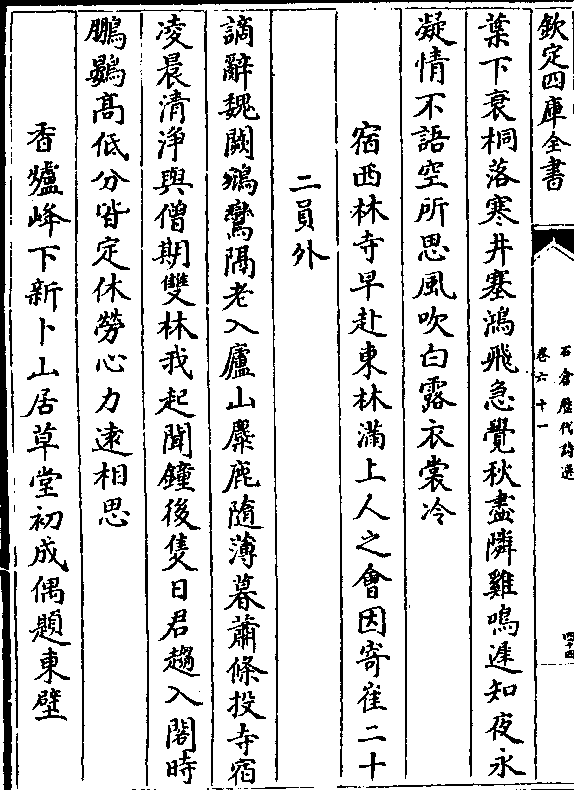 欽定四庫全書
石倉歴代詩選
卷六十一
四十四
葉下衰桐落寒井塞鴻飛急覺秋盡隣雞鳴遲知夜永
凝情不語空所思風吹白露衣裳冷
宿西林寺早赴東林滿上人之會因寄崔二十
二員外
謫辭魏闕鵷鸞隔老入廬山麋鹿隨薄暮蕭條投寺宿
凌晨清淨與僧期雙林我起聞鐘後隻日君趨入閤時
鵬鷃髙低分皆定休勞心力逺相思
香爐峰下新卜山居草堂初成偶題東壁